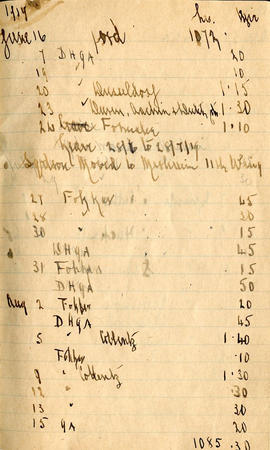 1919 hrs. Mins
June 16 ford 1073
7 DH9A 20
19 " 10
20 " Dusseldorf 1.15
23 " Duren, Aachen 1.30
26 Fokker 1.10
Leave 28/6 to 28/7/19
Sqdron Moved to Merheim 11th Wing
27 Fokker " 45
28 " 30
30 " 15
DH9A 45
31 Fokker 15
DH9A 50
Aug 2 Fokker 20
DH9A 45
5 " Coblentz 1.40
Fokker .10
9 " Coblentz 1.30
12 " .30
13 " 30
15 9A 20
1085.30